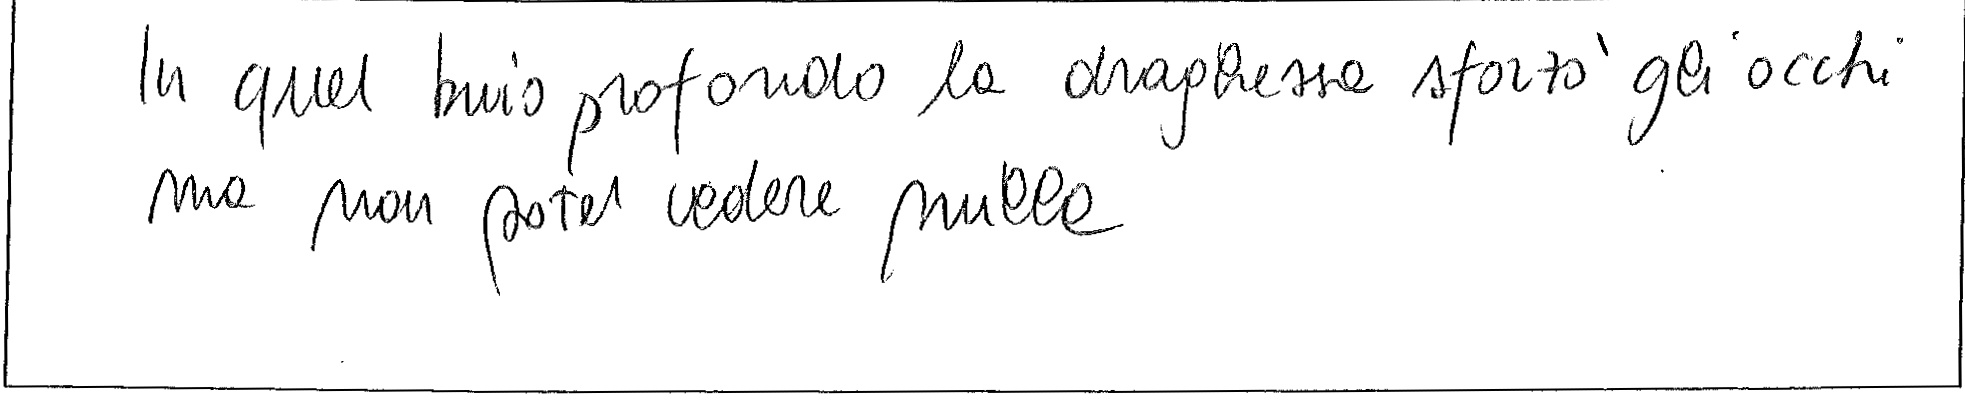 In quel buio profondo la draghessa sforzò gli occhi
ma non potel vedere nulla